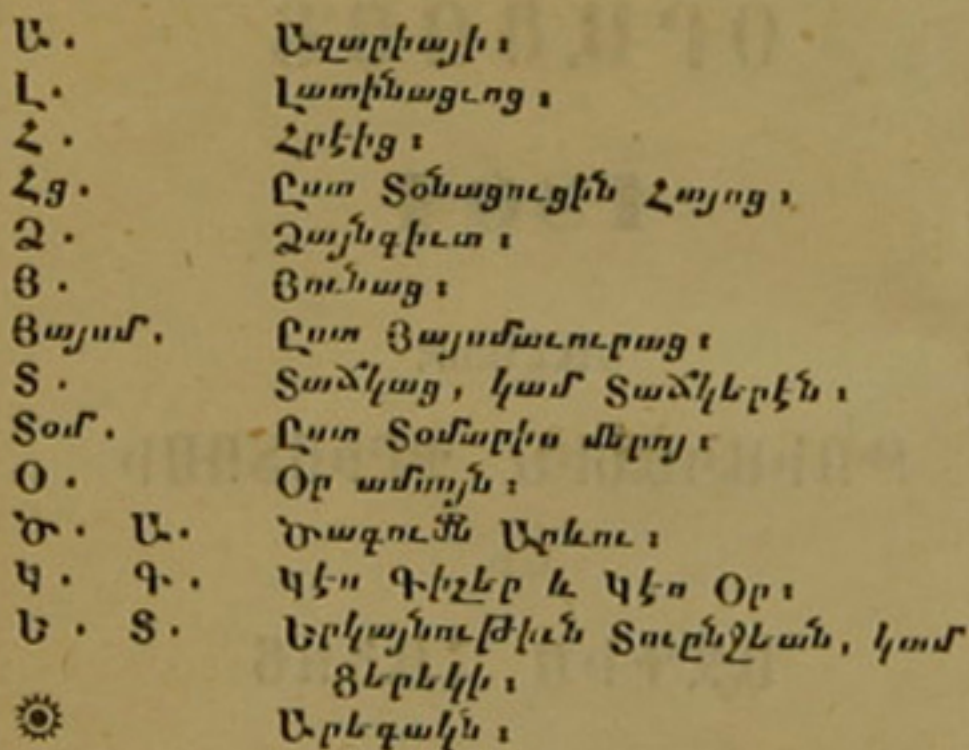 Ա. Ազարիայի։
Լ. Լատինացւոց։
Հ. Հրէից։
Հց. Ըստ Տօնացուցին Հայոց։
Ձ. Ձայնգիւտ։
Յ. Յունաց։
Յայսմ. Ըստ Յայսմաւուրաց։
Տ. Տաճկաց, կամ Տաճկերէն։
Տօմ. Ըստ Տօմարիս մերոյ։
Օ. Օր ամսոյն։
Ծ. Ա. Ծագումն Արևու։
Կ. Գ. Կէս Գիշեր և Կէս Օր։
Ե. Տ. Երկայնութիւն Տուընջեան, կամ
Ցերեկի։
Արեգակն։